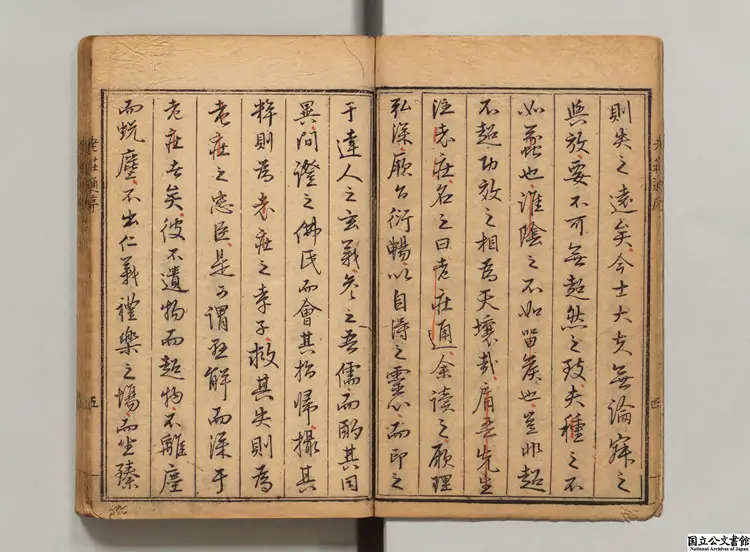 則失之遠矣今士大夫無論之
與放要不可無超然之致夫種之不
如蠡也淮陰之不如留侯也豈非超
不超功效之相為天壤哉肩吾先生
注老莊名之曰老莊通余讀之厥理
弘深厥旨衍暢以自得之靈心而印之
于達人之玄義參之吾儒而酌其同
異間證之佛氏而會其指歸撮其
粹則為老莊之孝子救其失則為
老莊之忠臣是可謂解而深于
老莊者矣彼不遺物而超物不離塵
而蛻塵不出仁義禮樂之場而坐臻
老莊通序
四
老莊通序
五
国立公文書館
National Archives of Japan